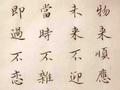 物來順應
未來不迎
當時不雜
即過不恋